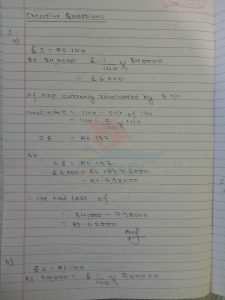 Creative Questions
1.
a)
£ 1 = Rs. 140
Rs. 840000 = £ 1/140 × 840000
= £ 6,000
If Nep currency revaluated by 5 %
New rate = 140 - 5 % of 140
= 140 - 5/100 × 140
I £ = Rs. 133
so
I £ = Rs. 133
£ 6,000 = Rs. 133 × 6000
= Rs. 798000
∴ He had loss of
= 840000 - 798000
= Rs. 42000
Ans
b)
£ 1 = Rs. 140
Rs. 700,000 = £ 1/140 × 700,000